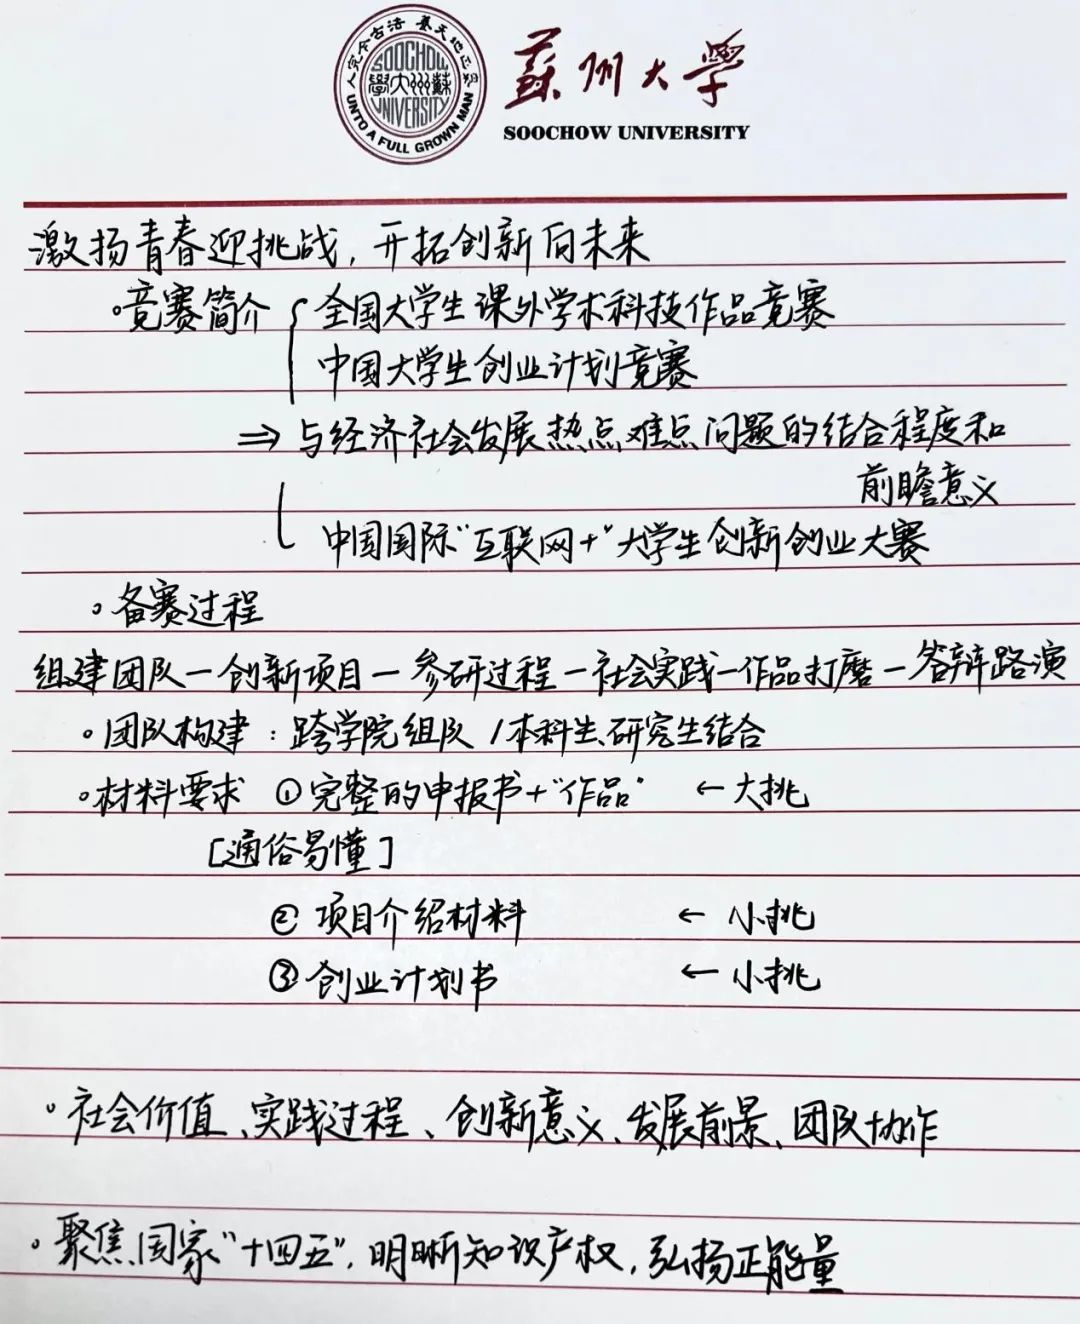 養天地正氣 法古今完人
SOOCHOW
UNIVERSITY
UNTO A FULL GROWN MAN
蘇州大學
SOOCHOW UNIVERSITY
激扬青春迎挑战，开拓创新向未来
·竞赛简介 { 全国大学生课外学术科技作品竞赛
中国大学生创业计划竞赛
⇒ 与经济社会发展热点难点问题的结合程度和
前瞻意义
中国国际“互联网+”大学生创新创业大赛
。备赛过程
组建团队—创新项目—参研过程—社会实践—作品打磨—答辩路演
。团队构建：跨学院组队 / 本科生、研究生结合
。材料要求 ①完整的申报书+“作品” ← 大挑
[通俗易懂]
② 项目介绍材料 ← 小挑
③ 创业计划书 ← 小挑
。社会价值、实践过程、创新意义、发展前景、团队协作
。聚焦国家“十四五”，明晰知识产权，弘扬正能量